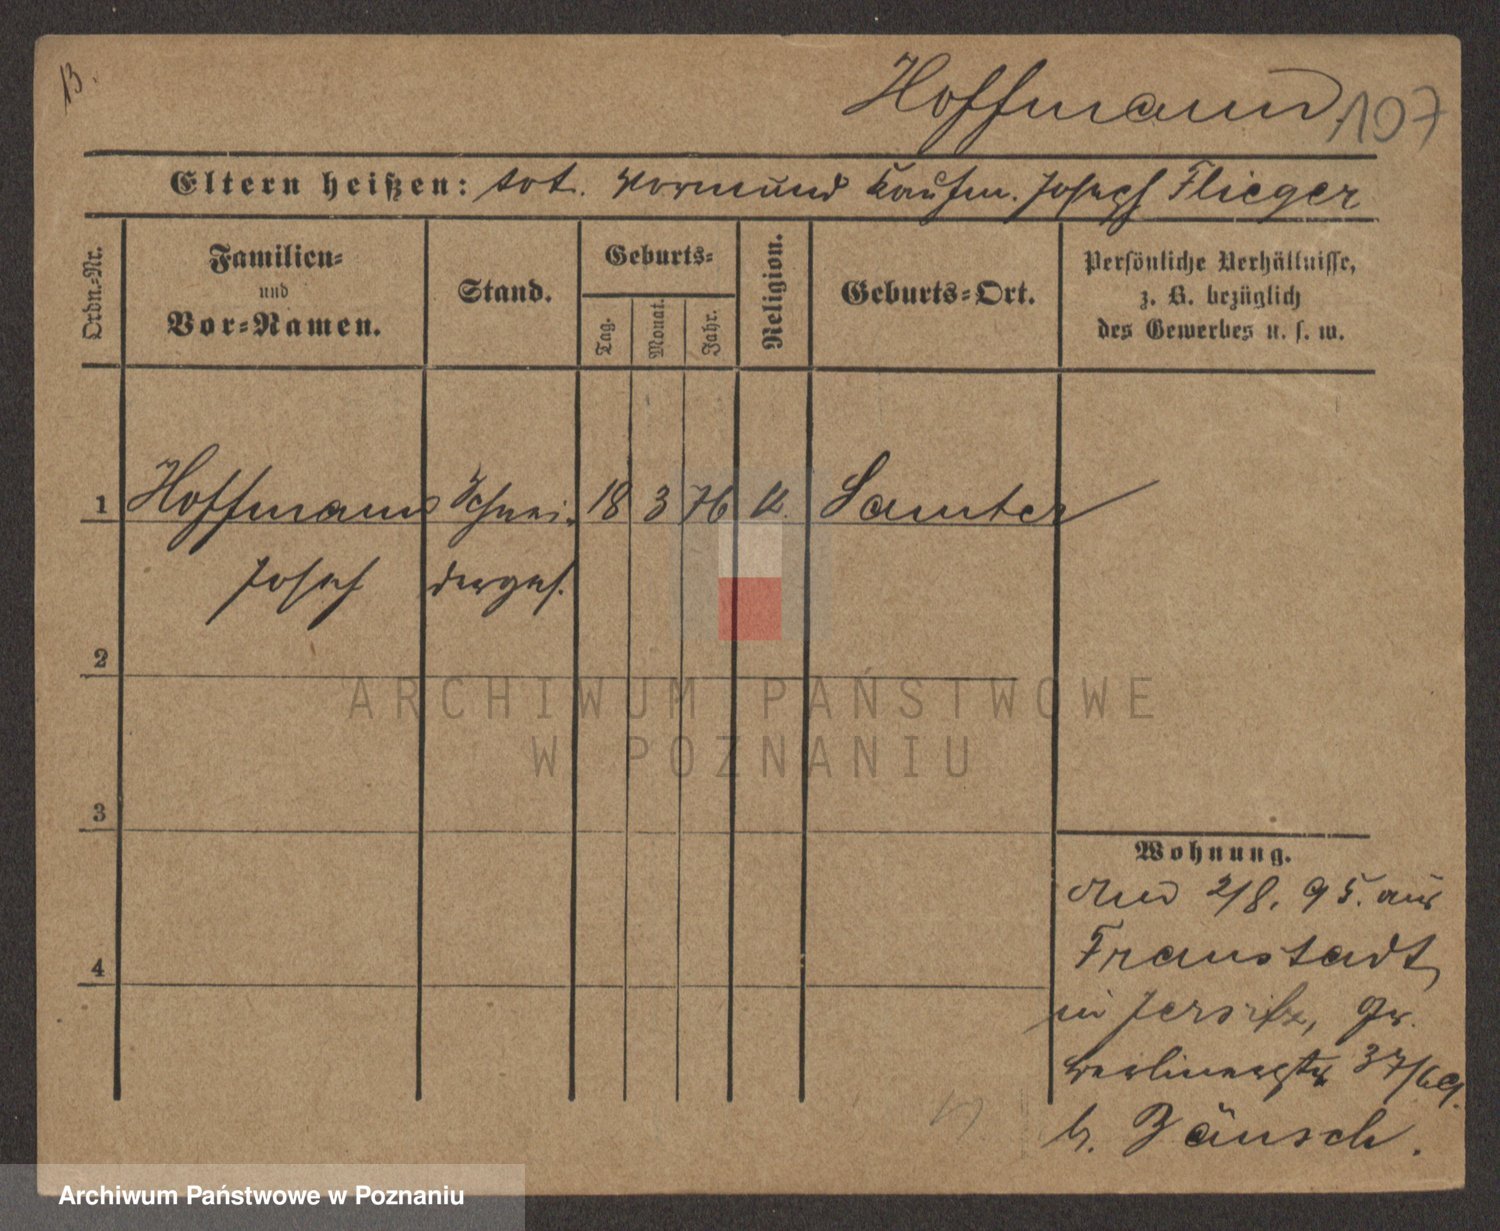 13.
Hoffmann
107
Eltern heißen: tot. Vormund Kaufm. Josef Flieger
Ordn.-Nr.
Familien-
und
Vor-Namen.
Stand.
Geburts-
Tag.
Monat.
Jahr.
Religion.
Geburts-Ort.
Persönliche Verhältnisse,
z. B. bezüglich
des Gewerbes u. s. w.
1 Hoffmann Schnei- 18 3 76 K. Samter
Josef derges.
2
3
4
Wohnung.
2/8. 95. aus
Fraustadt,
in Jersitz, Gr.
Berlinerstr 37/
b. Bänsch.
ARCHIWUM PAŃSTWOWE
W POZNANIU
Archiwum Państwowe w Poznaniu